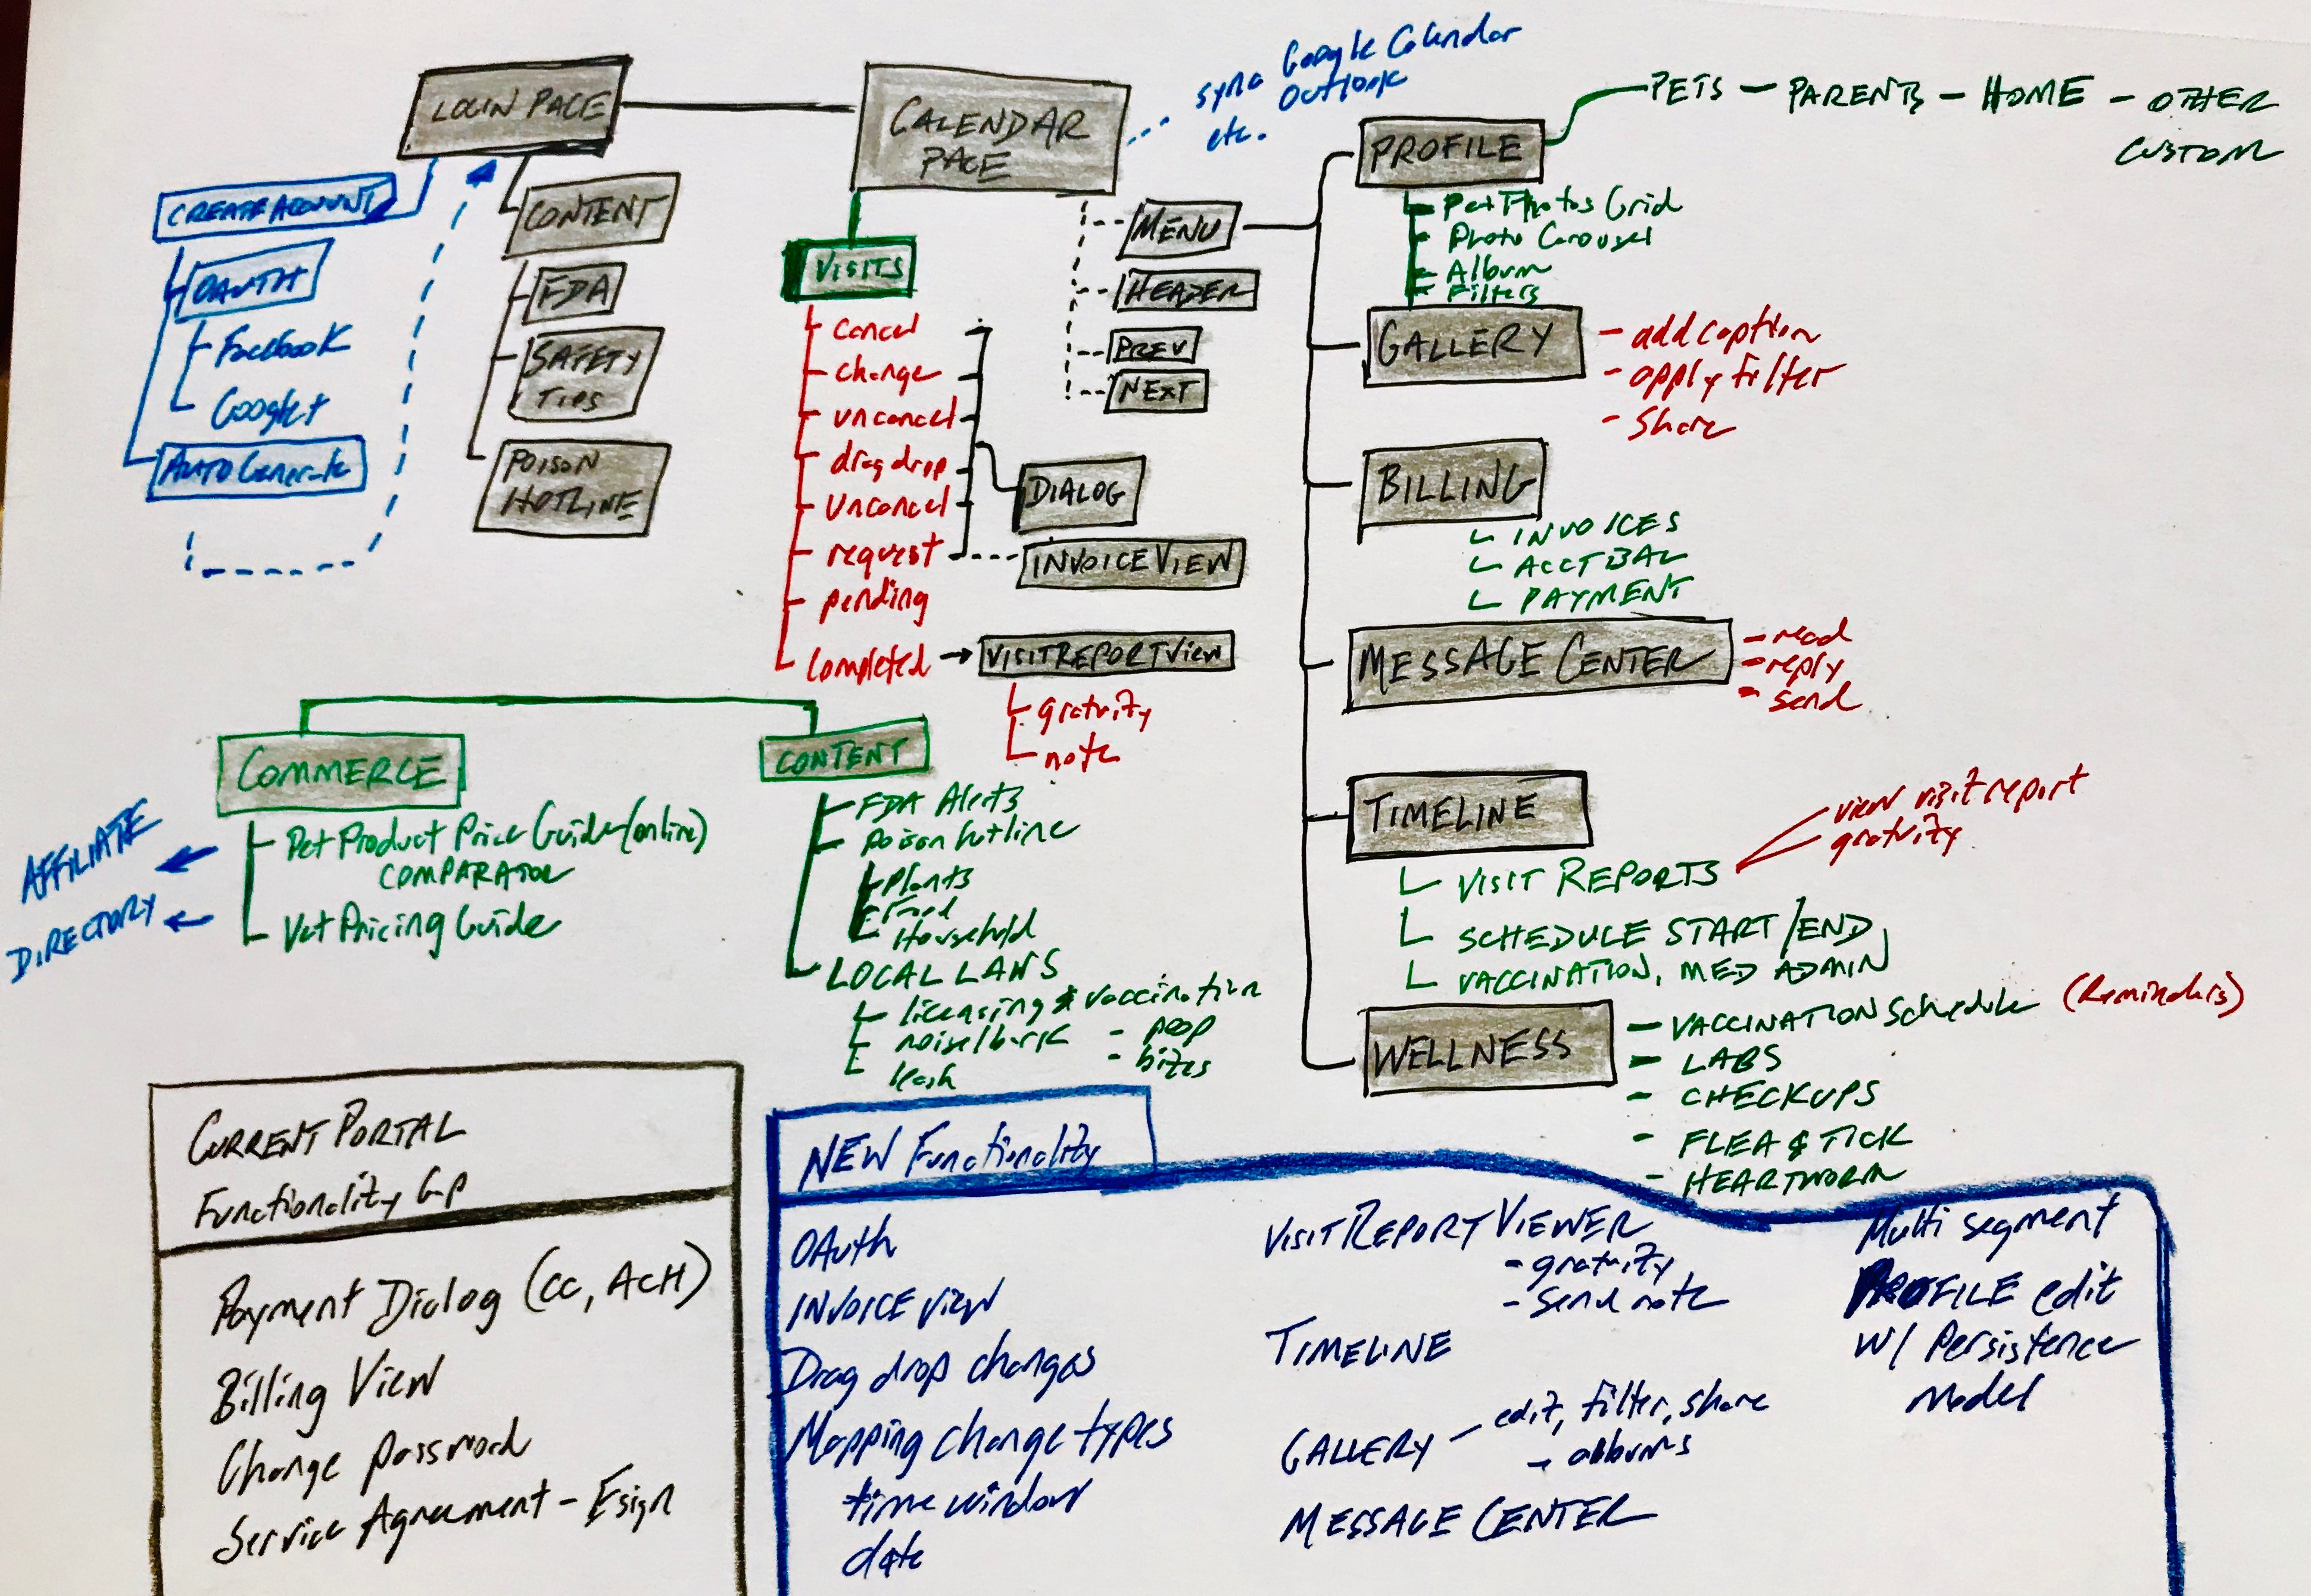 LOGIN PAGE
CREATE ACCOUNT
OAUTH
Facebook
Google+
AUTO Generate
CONTENT
FDA
SAFETY
TIPS
POISON
HOTLINE
CALENDAR
PAGE
sync Google Calendar
Outlook
etc.
VISITS
cancel
change
uncancel
drag drop
uncancel
request
pending
completed
DIALOG
INVOICE VIEW
VISIT REPORT View
gratuity
note
MENU
HEADER
PREV
NEXT
PROFILE
PETS - PARENTS - HOME - OTHER
CUSTOM
Pet Photos Grid
Photo Carousel
Album
Filters
GALLERY
- add caption
- apply filter
- share
BILLING
INVOICES
ACCT BAL
PAYMENT
MESSAGE CENTER
- read
- reply
- send
TIMELINE
view visit report
gratuity
VISIT REPORTS
SCHEDULE START/END
VACCINATION, MED ADMIN
WELLNESS
- VACCINATION Schedule (Reminders)
- LABS
- CHECKUPS
- FLEA & TICK
- HEARTWORM
COMMERCE
Pet Product Price Guide (online)
COMPARATOR
Vet Pricing Guide
AFFILIATE
DIRECTORY
CONTENT
FDA Alerts
Poison hotline
Plants
Food
Household
LOCAL LAWS
licensing & vaccination
noise/bark - poop
leash - bites
CURRENT PORTAL
Functionality Gp
Payment Dialog (CC, ACH)
Billing View
Change password
Service Agreement - Esign
NEW Functionality
OAuth
INVOICE view
Drag drop changes
Mapping change types
time window
date
VISIT REPORT VIEWER
- gratuity
- send note
TIMELINE
GALLERY - edit, filter, share
- albums
MESSAGE CENTER
Multi segment
PROFILE edit
W/ Persistence
Model